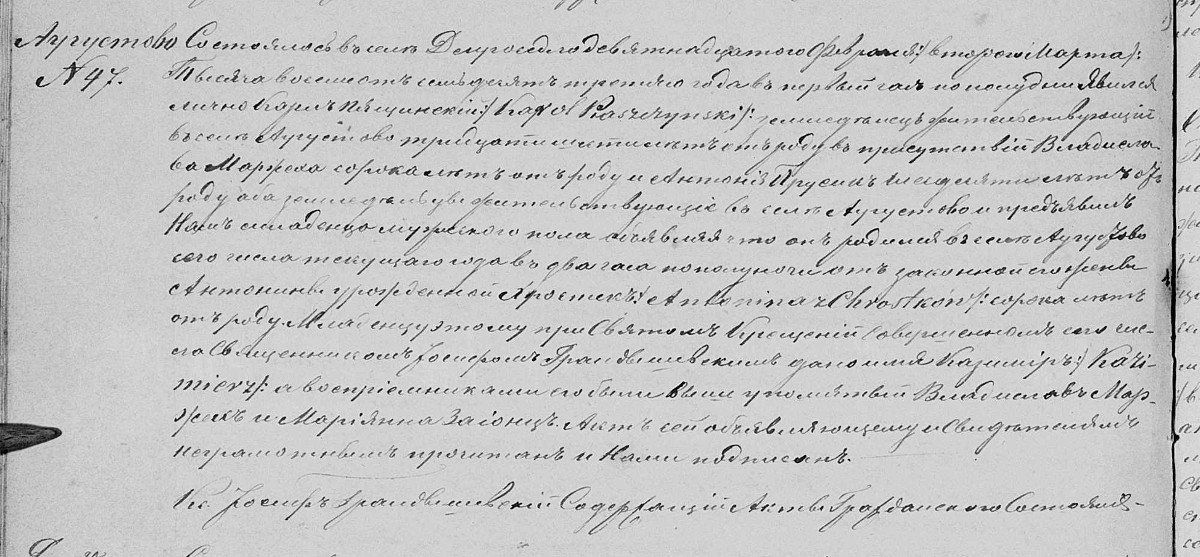 Аугустово
N 47.
Состоялось въ селѣ Длугоседло девятнадцатого Февраля /: второго Марта :/
Тысяча восемсотъ семьдесятъ третяго года въ первый часъ по полудни явился
лично Карлъ Пящинскій /: Karol Piaszczynski :/ земледѣлецъ жительствующій
въ селѣ Аугустово тридцати шести лѣтъ отъ роду въ присутствій Владисла-
ва Маржеха сорока лѣтъ от роду и Антонія Прусикъ лѣтъ отъ
роду оба земледѣльцы жительствующіе въ селѣ Аугустово и предъявилъ
Намъ младенца мужеского пола объявляя что онъ родился въ селѣ Аугустово
сего числа текущаго года въ два часа по полуночи отъ законной его жены
Антонины урожденной Хростекъ /: Antonina z Chrostków :/ сорока лѣтъ
отъ роду. Младенцу этому при Святомъ Крещеній совершенномъ сего чис-
ла Священникомъ Іосифомъ Грандышевскимъ дано имя Казиміръ /: Kazi-
mierz :/ а воспріемниками его были выше упомятый Владиславъ Мар-
жехъ и Маріянна Заіонцъ. Актъ сей объявляющему и Свидѣтелямъ
неграмотнымъ прочитанъ и Нами подписанъ.
Кс. Іосифъ Грандышевскій Содержащій Акты Гражданского Состоянія